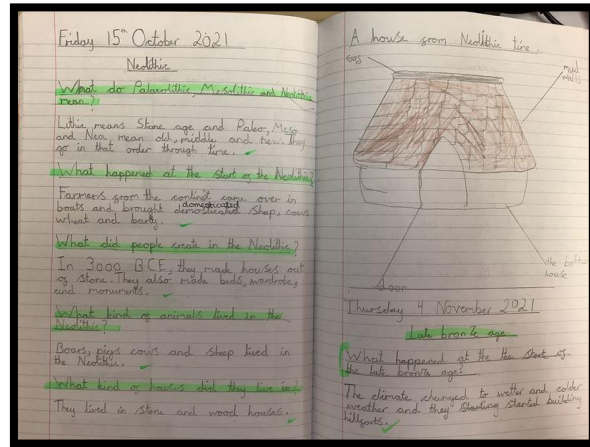 Friday 15th October 2021
Neolithic
What do Palaeolithic, Mesolithic and Neolithic
mean?
Lithic means Stone age and Paleo, Meso
and Neo mean old, middle and new. they
go in that order through time.
What happened at the start of the Neolithic?
Farmers from the came over in
boats and brought domesticated sheep, cows
wheat and
What did people create in the Neolithic?
In 3000 BCE, they made houses out
of stone. They also made beds, wardrobes
and monuments.
What kind of animals lived in the
Neolithic?
Boars, pigs cows and sheep lived in
the Neolithic.
What kind of houses did they live in?
They lived in stone and wood houses.
A house from Neolithic time.
mud
walls
the
house
Door
Thursday 4 November 2021
Late bronze age
What happened at the the start of
the late bronze age?
The climate changed to wetter and colder
weather and they started building
hillforts.